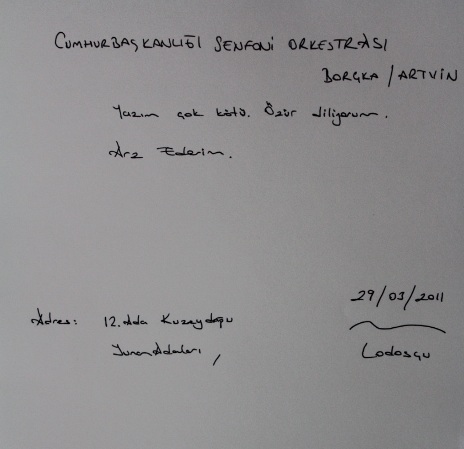 CUMHURBAŞKANLIĞI SENFONİ ORKESTRASI
BORÇKA / ARTVİN
Yazım çok kötü. Özür diliyorum.
Arz Ederim.
29/03/2011
Adres: 12. Ada Kuzeydoğu
Lodosçu
Yunan Adaları,